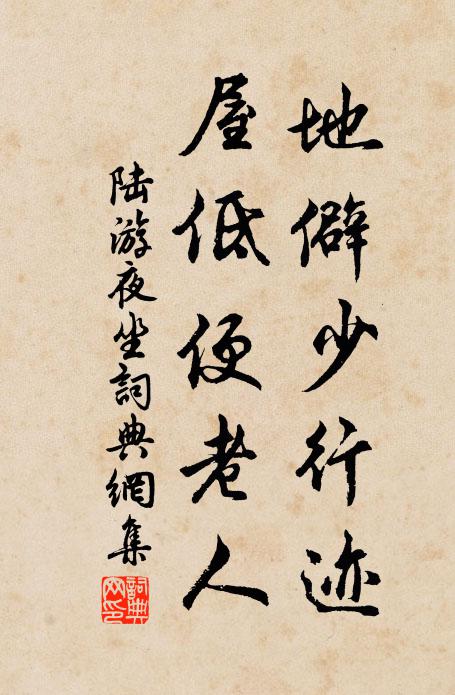 地僻少行迹
屋低便老人
陆游夜坐詞典網集
詞典
网印